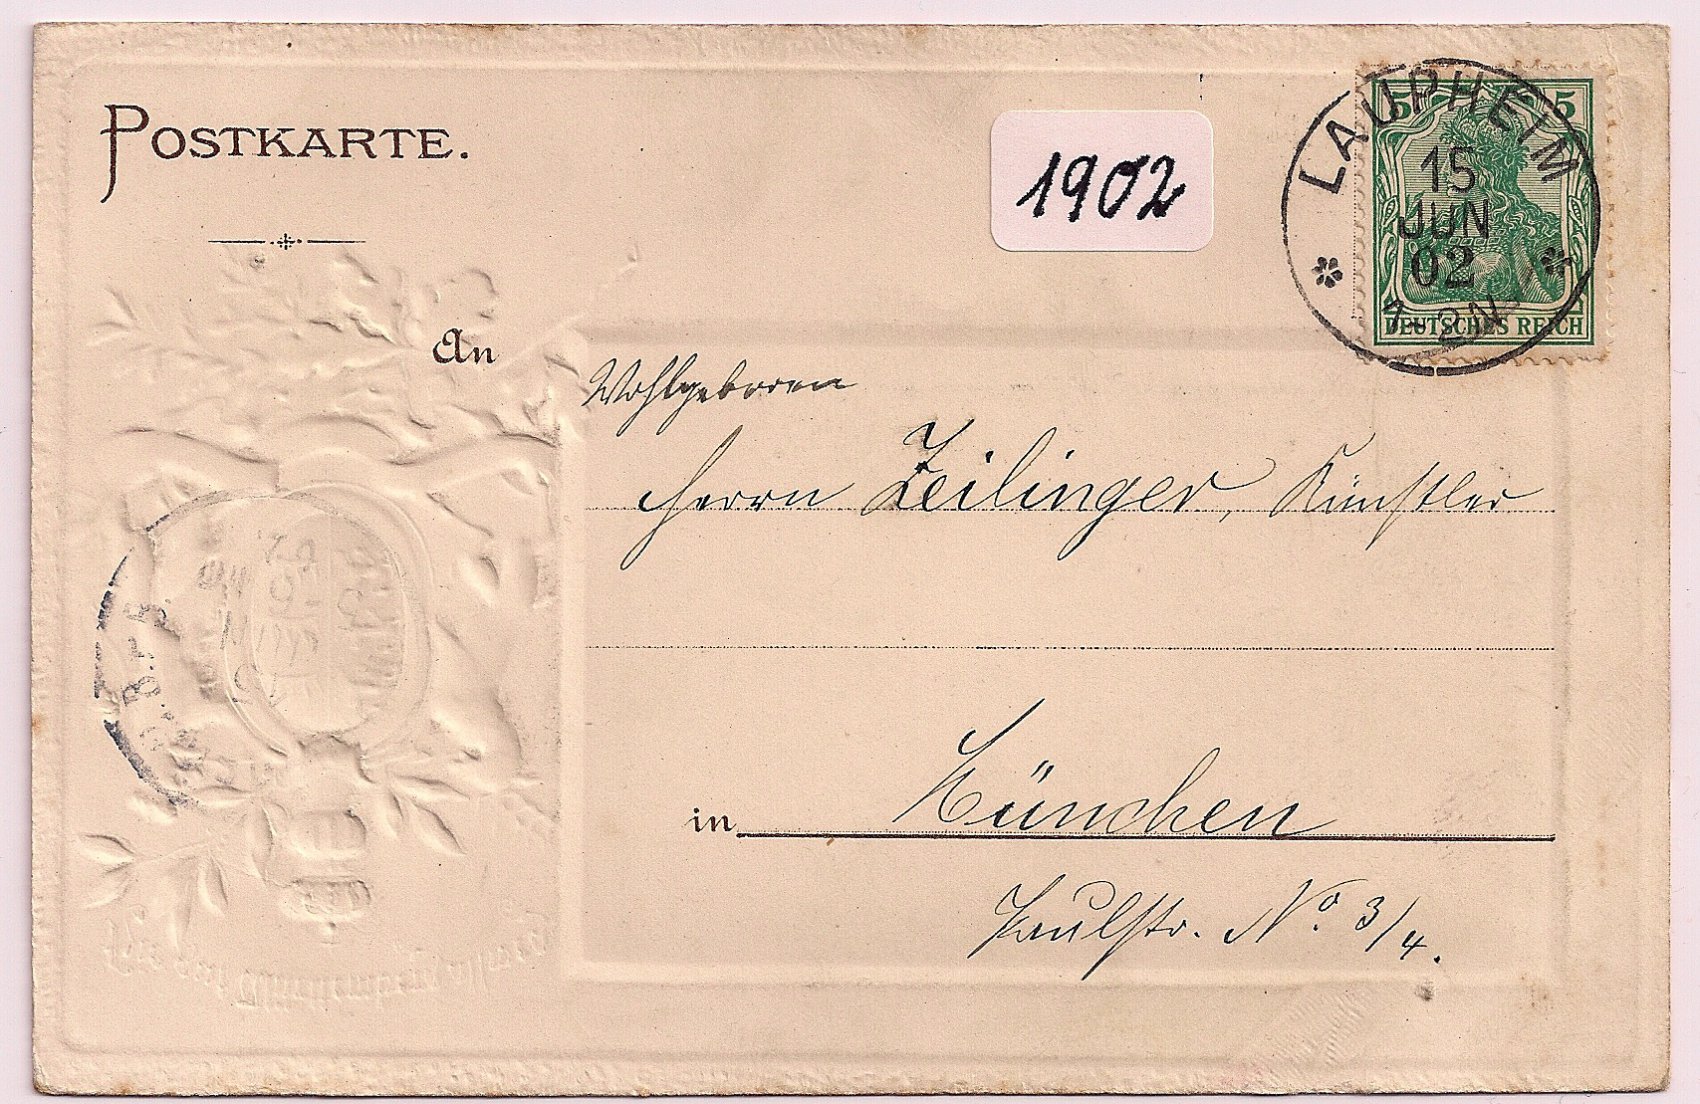 POSTKARTE.
1902
LAUPHEIM
15
JUN
02
1-2N
5 5
DEUTSCHES REICH
An
Wohlgeboren
Herrn Zeilinger, Künstler
in München
Paulstr. No. 3/4.